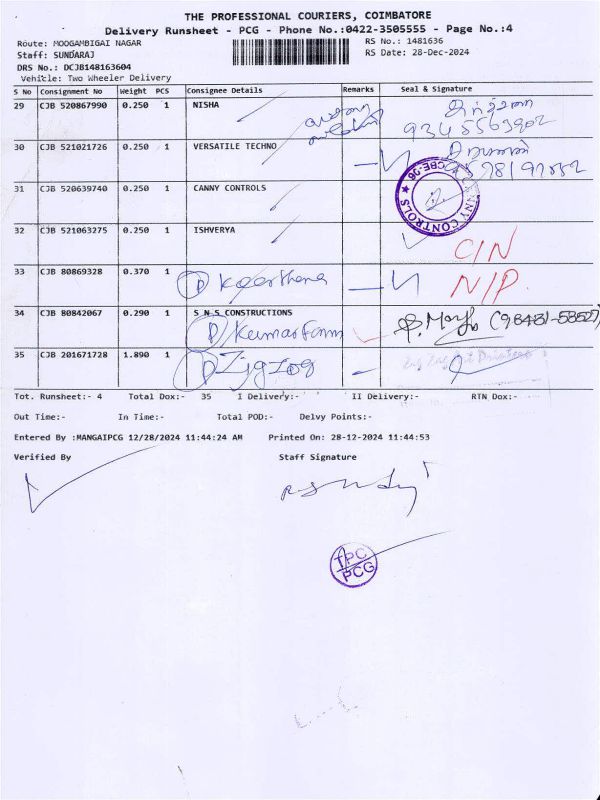 THE PROFESSIONAL COURIERS, COIMBATORE
Delivery Runsheet - PCG - Phone No.:0422-3505555 - Page No.:4
Route: MOOGAMBIGAI NAGAR RS No.: 1481636
Staff: SUNDARAJ RS Date: 28-Dec-2024
DRS No.: DCJB148163604
Vehicle: Two Wheeler Delivery
S No Consignment No Weight PCS Consignee Details Remarks Seal & Signature
29 CJB 520867990 0.250 1 NISHA
9345563902
30 CJB 521021726 0.250 1 VERSATILE TECHNO
31 CJB 520639740 0.250 1 CANNY CONTROLS
CANNY CONTROLS ★ CBE-06 ★
32 CJB 521063275 0.250 1 ISHVERYA
C/N
33 CJB 80869328 0.370 1 D Keerthana N/P
34 CJB 80842067 0.290 1 S N S CONSTRUCTIONS
D/Kumar Farm
35 CJB 201671728 1.890 1 D Zigzog
Tot. Runsheet:- 4 Total Dox:- 35 I Delivery:- II Delivery:- RTN Dox:-
Out Time:- In Time:- Total POD:- Delvy Points:-
Entered By :MANGAIPCG 12/28/2024 11:44:24 AM Printed On: 28-12-2024 11:44:53
Verified By Staff Signature
TPC
PCG